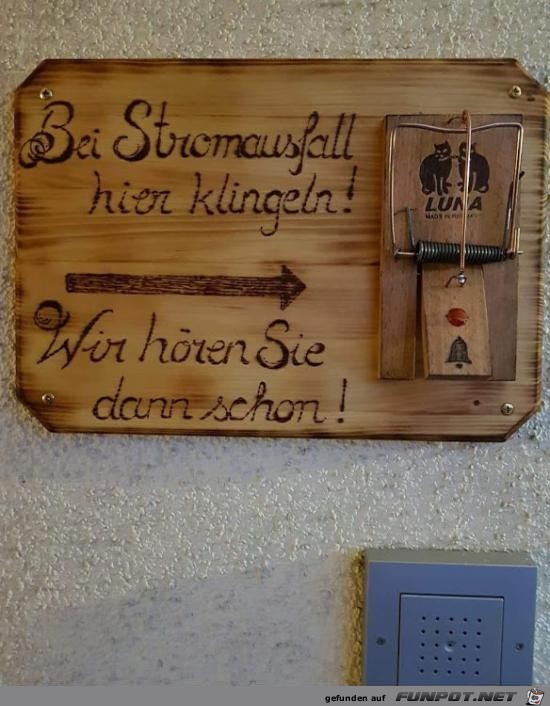 Bei Stromausfall
hier klingeln!
Wir hören Sie
dann schon!
LUNA
MADE IN
gefunden auf FUNPOT.NET